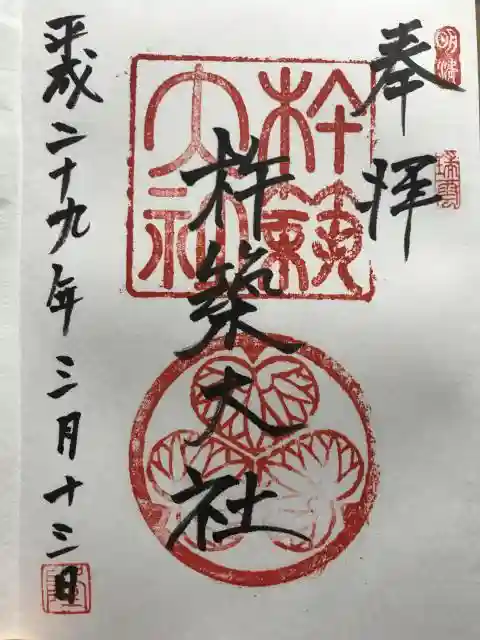 奉拝
杵築大社
平成二十九年三月十三日
杵築
大社